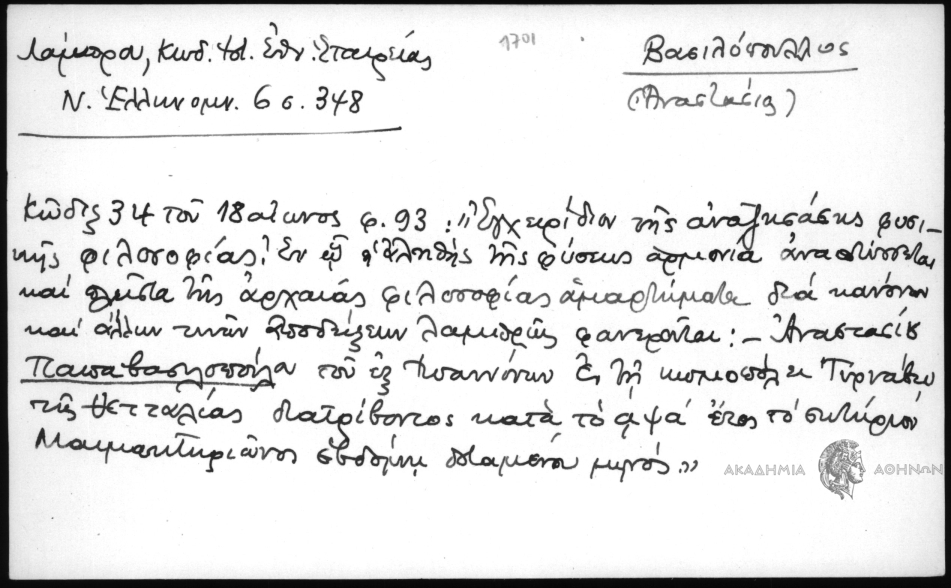 Λάμπρου, Κωδ. Ἱστ. Ἐθν. Ἑταιρείας
Ν. Ἑλληνομν. 6 σ. 348
1701
Βασιλόπουλλος
(Ἀναστάσιος)
Κῶδιξ 34 τοῦ 18 αἰῶνος φ. 93 : "Ἐγχειρίδιον τῆς ἀναζησάσης φυσι-
κῆς φιλοσοφίας, Ἐν ᾧ ἡ ἀληθὴς τῆς φύσεως ἁρμονία ἀναπτύσσεται
καί πλεῖστα τῆς ἀρχαίας φιλοσοφίας ἁμαρτήματα διά κανόνων
καί ἄλλων τινῶν ἀποδείξεων λαμπρῶς φανεροῦται : – Ἀναστασίου
Παπαβασιλοπούλου τοῦ ἐξ Ἰωαννίνων ἐν τῇ κωμοπόλει Τυρνάβου
τῆς Θετταλίας διατρίβοντος κατὰ τὸ ͵αψα' ἔτος τό σωτήριον
Μαιμακτηριῶνος ἑβδόμῃ ἱσταμένου μηνός."
ΑΚΑΔΗΜΙΑ ΑΘΗΝΩΝ